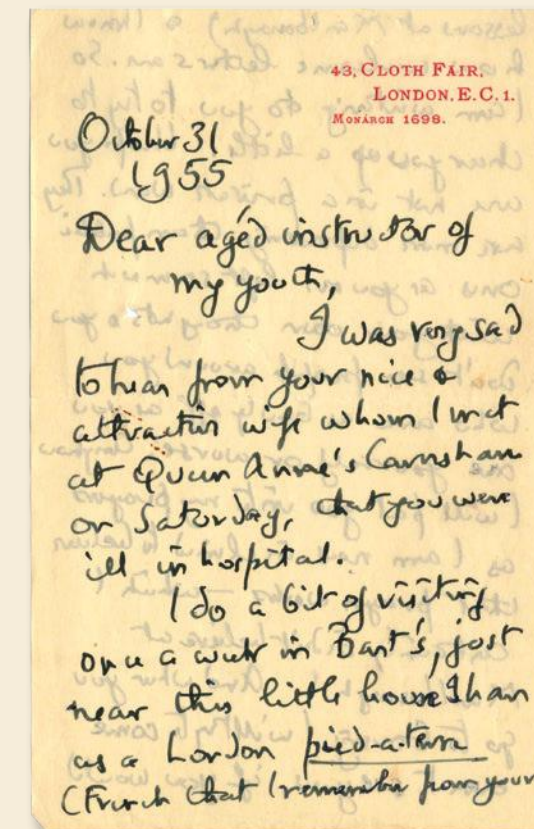 43, CLOTH FAIR,
LONDON. E.C. 1.
MONARCH 1698.
October 31
1955
Dear agéd instructor of
my youth,
I was very sad
to hear from your nice &
attractive wife whom I met
at Queen Anne's Caversham
on Saturday, that you were
ill in hospital.
I do a bit of visiting
once a week in Bart's, just
near this little house I have
as a London pied-a-terre
(French that I remember from your